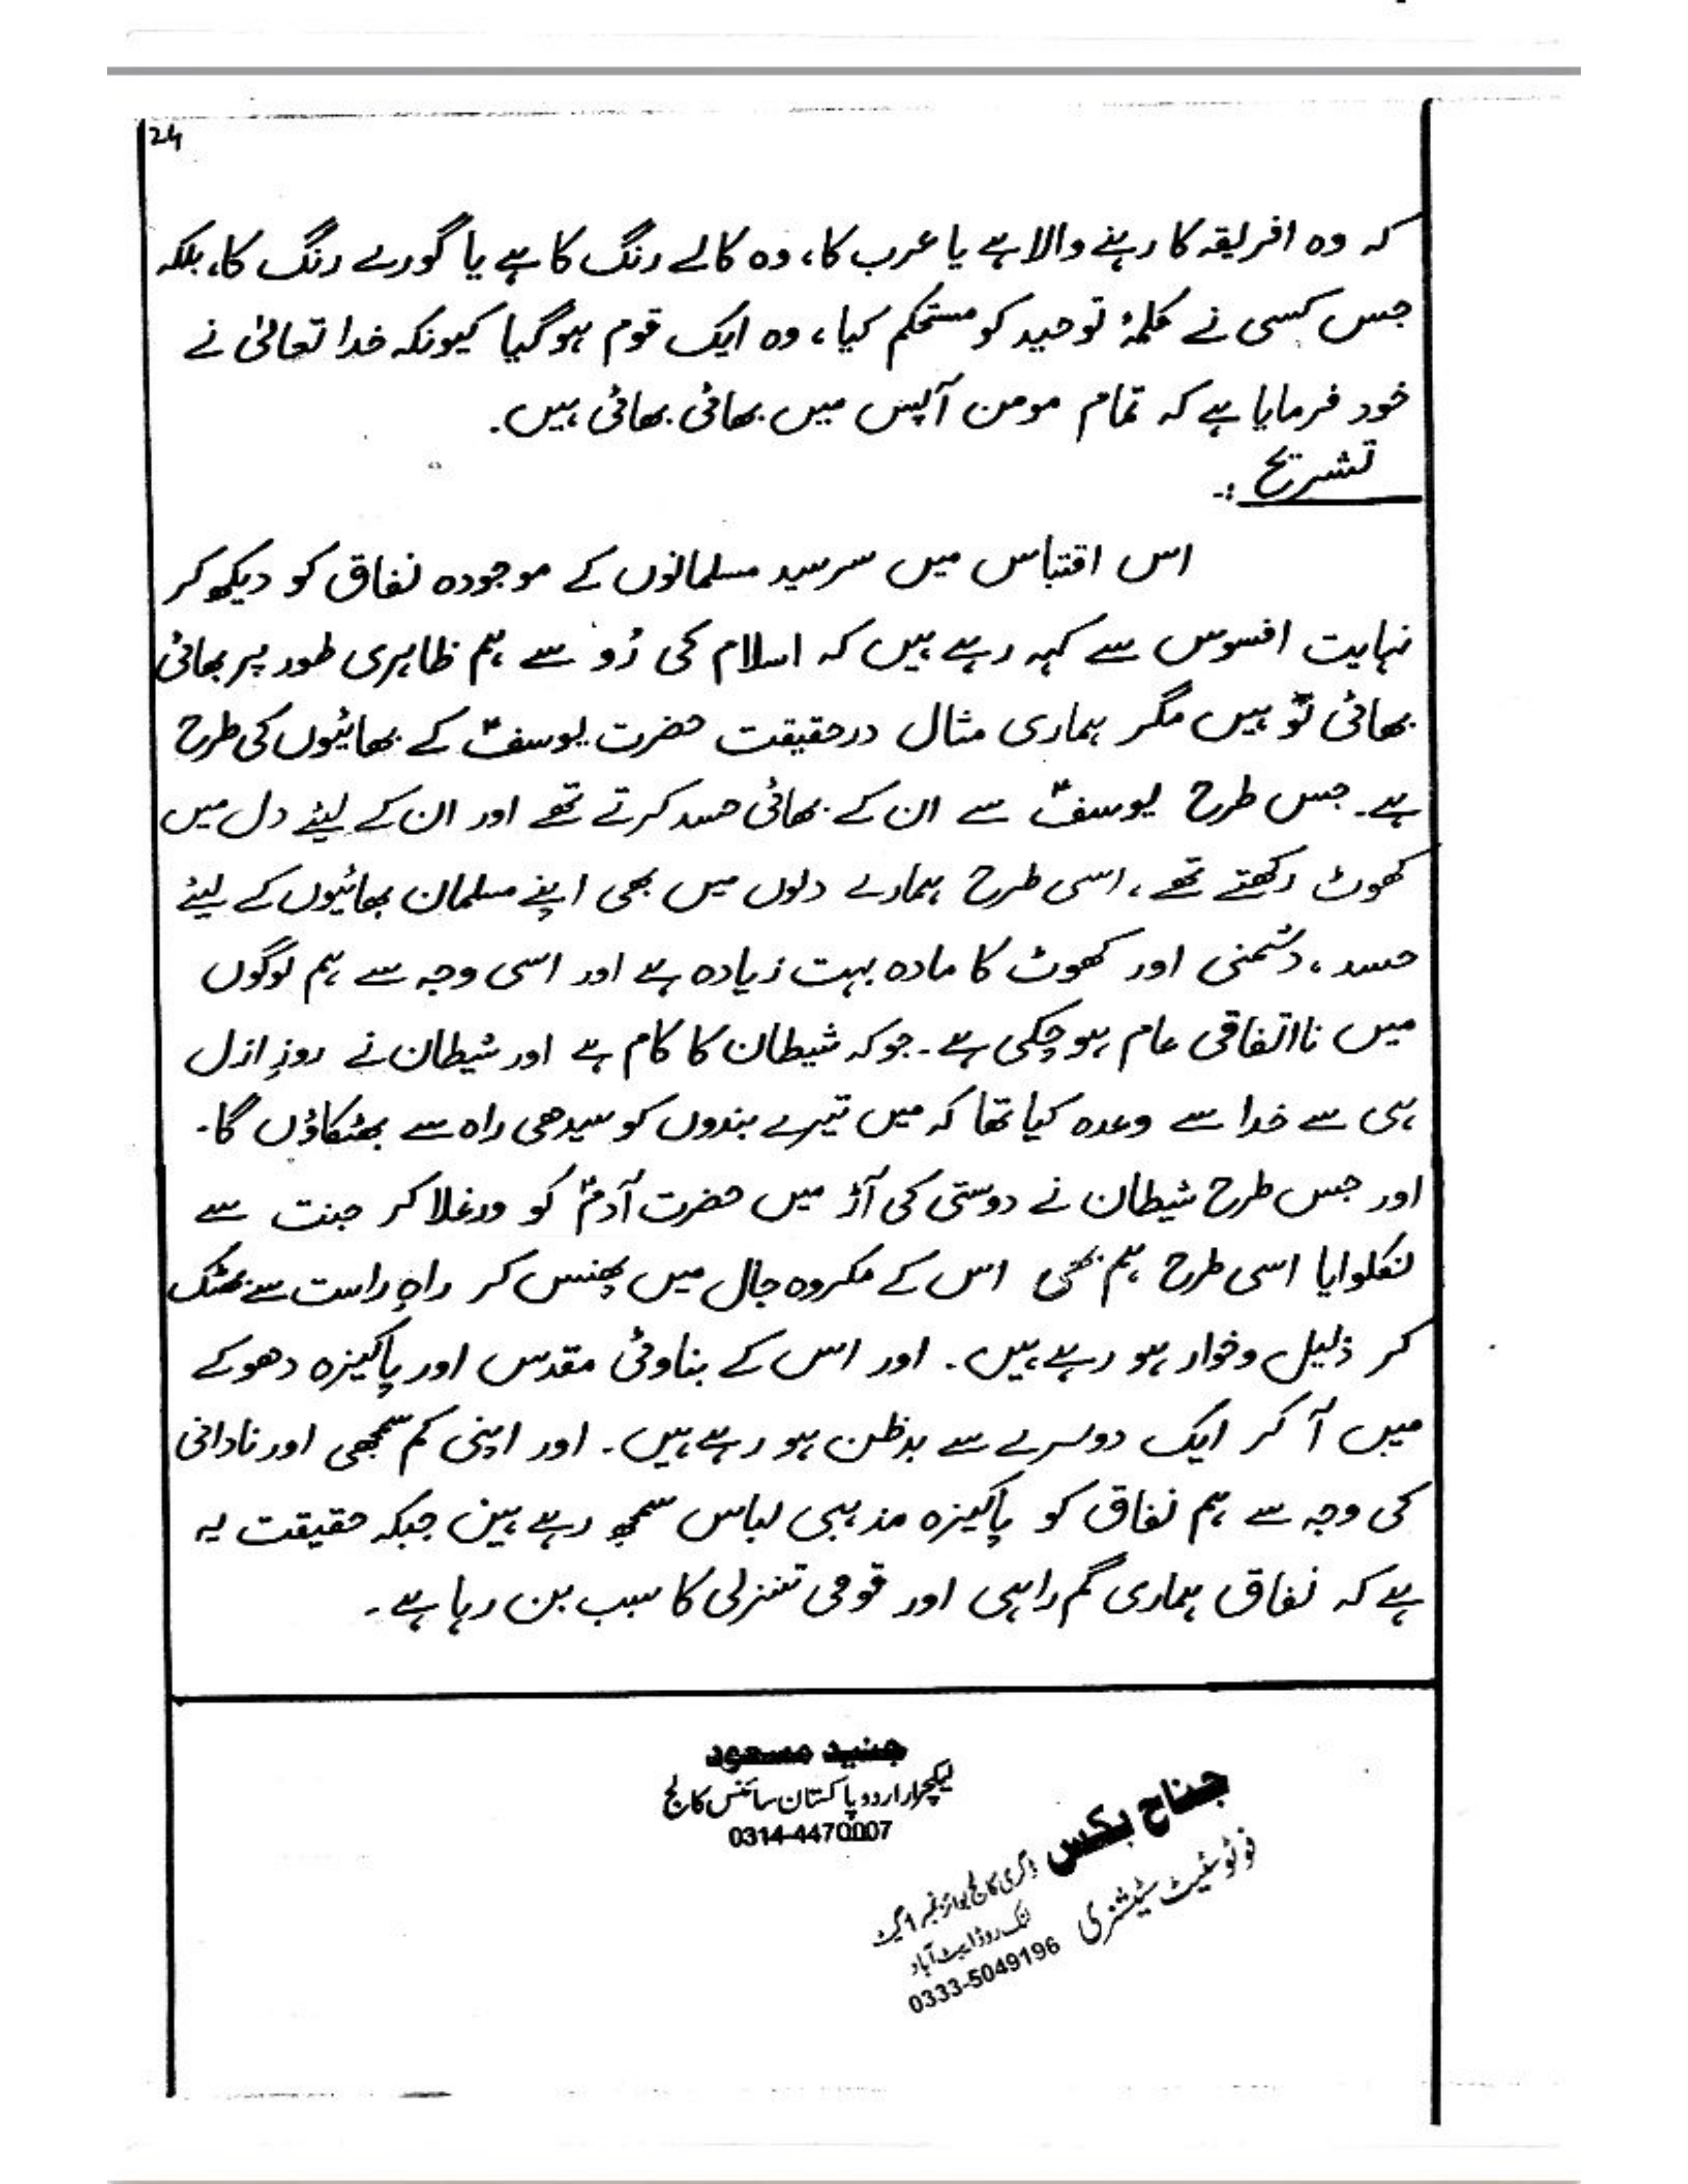 24
کہ وہ افریقہ کا رہنے والا ہے یا عرب کا، وہ کالے رنگ کا ہے یا گورے رنگ کا، بلکہ
جس کسی نے کلمۂ توحید کو مستحکم کیا، وہ ایک قوم ہوگیا کیونکہ خدا تعالیٰ نے
خود فرمایا ہے کہ تمام مومن آپس میں بھائی بھائی ہیں۔
تشریح :-
اس اقتباس میں سرسید مسلمانوں کے موجودہ نفاق کو دیکھ کر
نہایت افسوس سے کہہ رہے ہیں کہ اسلام کی رُو سے ہم ظاہری طور پر بھائی
بھائی تو ہیں مگر ہماری مثال درحقیقت حضرت یوسفؑ کے بھائیوں کی طرح
ہے۔ جس طرح یوسفؑ سے ان کے بھائی حسد کرتے تھے اور ان کے لیئے دل میں
کھوٹ رکھتے تھے، اسی طرح ہمارے دلوں میں بھی اپنے مسلمان بھائیوں کے لیئے
حسد، دشمنی اور کھوٹ کا مادہ بہت زیادہ ہے اور اسی وجہ سے ہم لوگوں
میں نااتفاقی عام ہوچکی ہے۔ جوکہ شیطان کا کام ہے اور شیطان نے روزِ ازل
ہی سے خدا سے وعدہ کیا تھا کہ میں تیرے بندوں کو سیدھی راہ سے بھٹکاؤں گا۔
اور جس طرح شیطان نے دوستی کی آڑ میں حضرت آدمؑ کو ورغلا کر جنت سے
نکلوایا اسی طرح ہم بھی اس کے مکروہ جال میں پھنس کر راہِ راست سے بھٹک
کر ذلیل وخوار ہو رہے ہیں۔ اور اس کے بناوٹی مقدس اور پاکیزہ دھوکے
میں آ کر ایک دوسرے سے بدظن ہو رہے ہیں۔ اور اپنی کم سمجھی اور نادانی
کی وجہ سے ہم نفاق کو پاکیزہ مذہبی لباس سمجھ رہے ہیں جبکہ حقیقت یہ
ہے کہ نفاق ہماری گم راہی اور قومی تنزلی کا سبب بن رہا ہے۔
جنید مسعود
لیکچرار اردو پاکستان سائنس کالج
0314-4470007
جناح بکس
فوٹو سٹیٹ سٹیشنری
ڈگری کالج بوائز نمبر 1 گیٹ
لنک روڈ ایبٹ آباد
0333-5049196